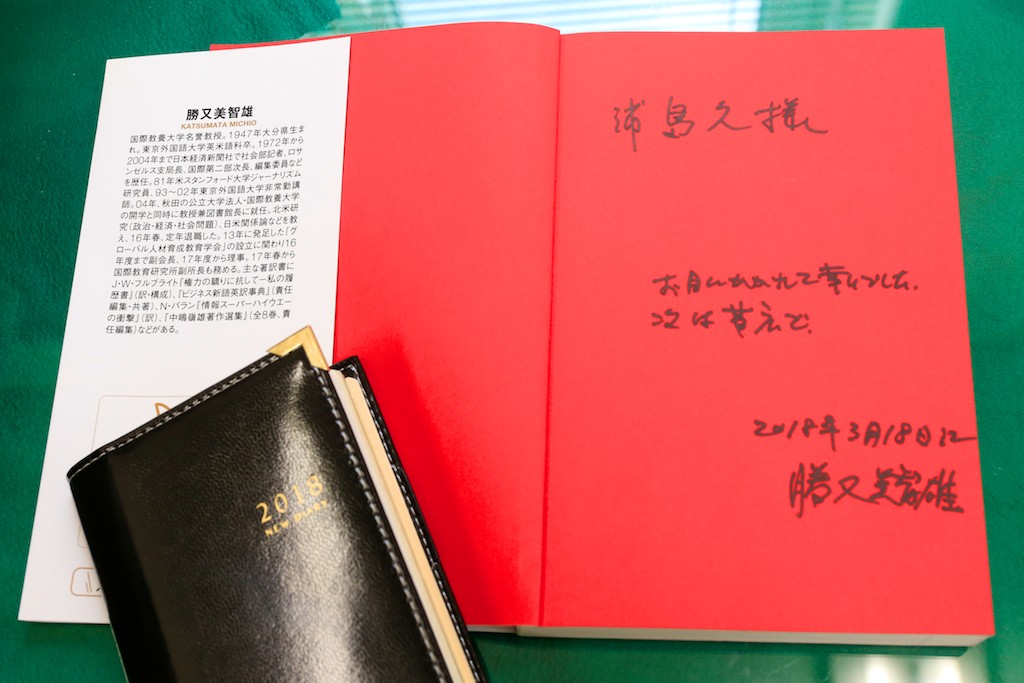 勝又美智雄
KATSUMATA MICHIO
国際教養大学名誉教授。1947年大分県生ま
れ。東京外国語大学英米語科卒。1972年から
2004年まで日本経済新聞社で社会部記者、ロサ
ンゼルス支局長、国際第二部次長、編集委員など
を歴任。81年米スタンフォード大学ジャーナリズム
研究員、93〜02年東京外国語大学非常勤講
師。04年、秋田の公立大学法人・国際教養大学
の開学と同時に教授兼図書館長に就任。北米研
究(政治・経済・社会問題)、日米関係論などを教
え、16年春、定年退職した。13年に発足した「グ
ローバル人材育成教育学会」の設立に関わり16
年度まで副会長、17年度から理事。17年春から
国際教育研究所副所長も務める。主な著訳書に
J・W・フルブライト『権力の驕りに抗して―私の履
歴書』(訳・構成)、『ビジネス新語英訳事典』(責任
編集・共著)、N・バラン『情報スーパーハイウエー
の衝撃』(訳)、『中嶋嶺雄著作選集』(全8巻、責
任編集)などがある。
浦島久様
お目にかかれて幸いでした。
次は東京で。
2018年3月18日に
勝又美智雄
2018
NEW DIARY